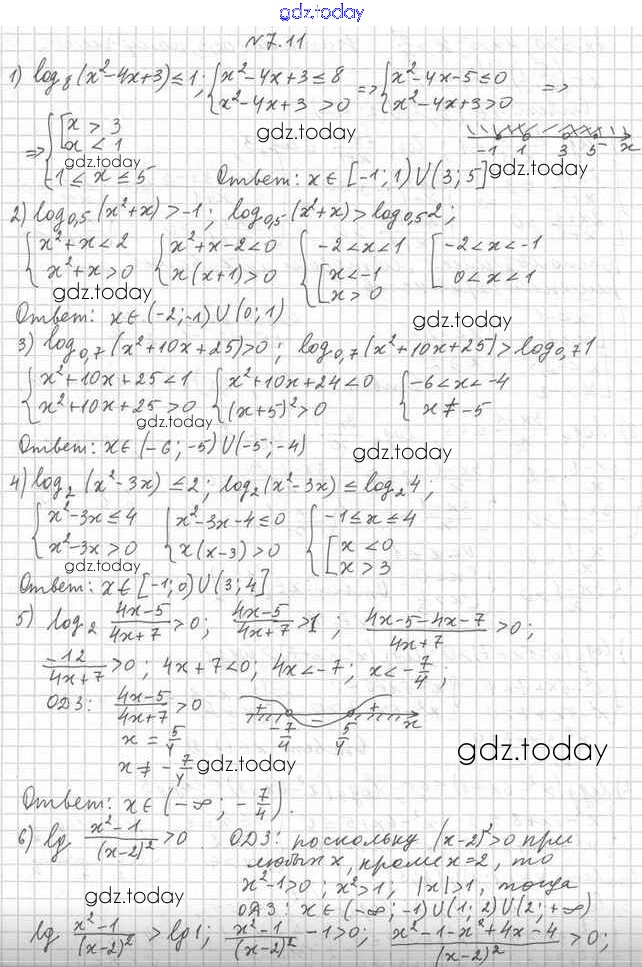 gdz.today
№7.11
1) log₈(x²-4x+3)≤1; {x²-4x+3≤8 => {x²-4x-5≤0 =>
{x²-4x+3>0 {x²-4x+3>0
gdz.today
=> {[x>3
[x<1
-1≤x≤5
gdz.today
-1 1 3 5 x
gdz.today
Ответ: x∈[-1;1)∪(3;5]
2) log₀,₅(x²+x)>-1; log₀,₅(x²+x)>log₀,₅2;
{x²+x<2 {x²+x-2<0 {-2<x<1 [-2<x<-1
{x²+x>0 {x(x+1)>0 {[x<-1 [0<x<1
[x>0
gdz.today
Ответ: x∈(-2;-1)∪(0;1)
gdz.today
3) log₀,₇(x²+10x+25)>0; log₀,₇(x²+10x+25)>log₀,₇1
{x²+10x+25<1 {x²+10x+24<0 {-6<x<-4
{x²+10x+25>0 {(x+5)²>0 {x≠-5
gdz.today
Ответ: x∈(-6;-5)∪(-5;-4)
gdz.today
4) log₂(x²-3x)≤2; log₂(x²-3x)≤log₂4;
{x²-3x≤4 {x²-3x-4≤0 {-1≤x≤4
{x²-3x>0 {x(x-3)>0 {[x<0
[x>3
gdz.today
Ответ: x∈[-1;0)∪(3;4]
5) log₂ (4x-5)/(4x+7)>0; (4x-5)/(4x+7)>1; (4x-5-4x-7)/(4x+7)>0;
-12/(4x+7)>0; 4x+7<0; 4x<-7; x<-7/4;
ОДЗ: (4x-5)/(4x+7)>0
+ - + x
-7/4 5/4
x=5/4
x≠-7/4
gdz.today
gdz.today
Ответ: x∈(-∞;-7/4).
6) lg (x²-1)/(x-2)²>0 ОДЗ: поскольку (x-2)²>0 при
любых x, кроме x=2, то
x²-1>0; x²>1; |x|>1, тогда
gdz.today
ОДЗ: x∈(-∞;-1)∪(1;2)∪(2;+∞)
lg (x²-1)/(x-2)²>lg1; (x²-1)/(x-2)²-1>0; (x²-1-x²+4x-4)/(x-2)²>0;